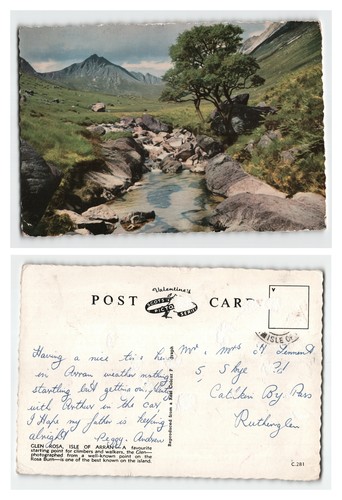 POST CARD
Valentine's
SCOTS PICTO SERIES
V
ISLE OF
Having a nice time here
on Arran weather nothing
startling but getting on fine
with Arthur in the car,
I Hope my father is keeping
alright Peggy. Andrew
Mr & Mrs H Tennent
5 Skye Pl
Cal'den By Pass
Rutherglen
Reproduced from a Real Colour Photograph
GLEN ROSA, ISLE OF ARRAN—A favourite
starting point for climbers and walkers, the Glen—
photographed from a well-known point on the
Rosa Burn—is one of the best known on the island.
C.281